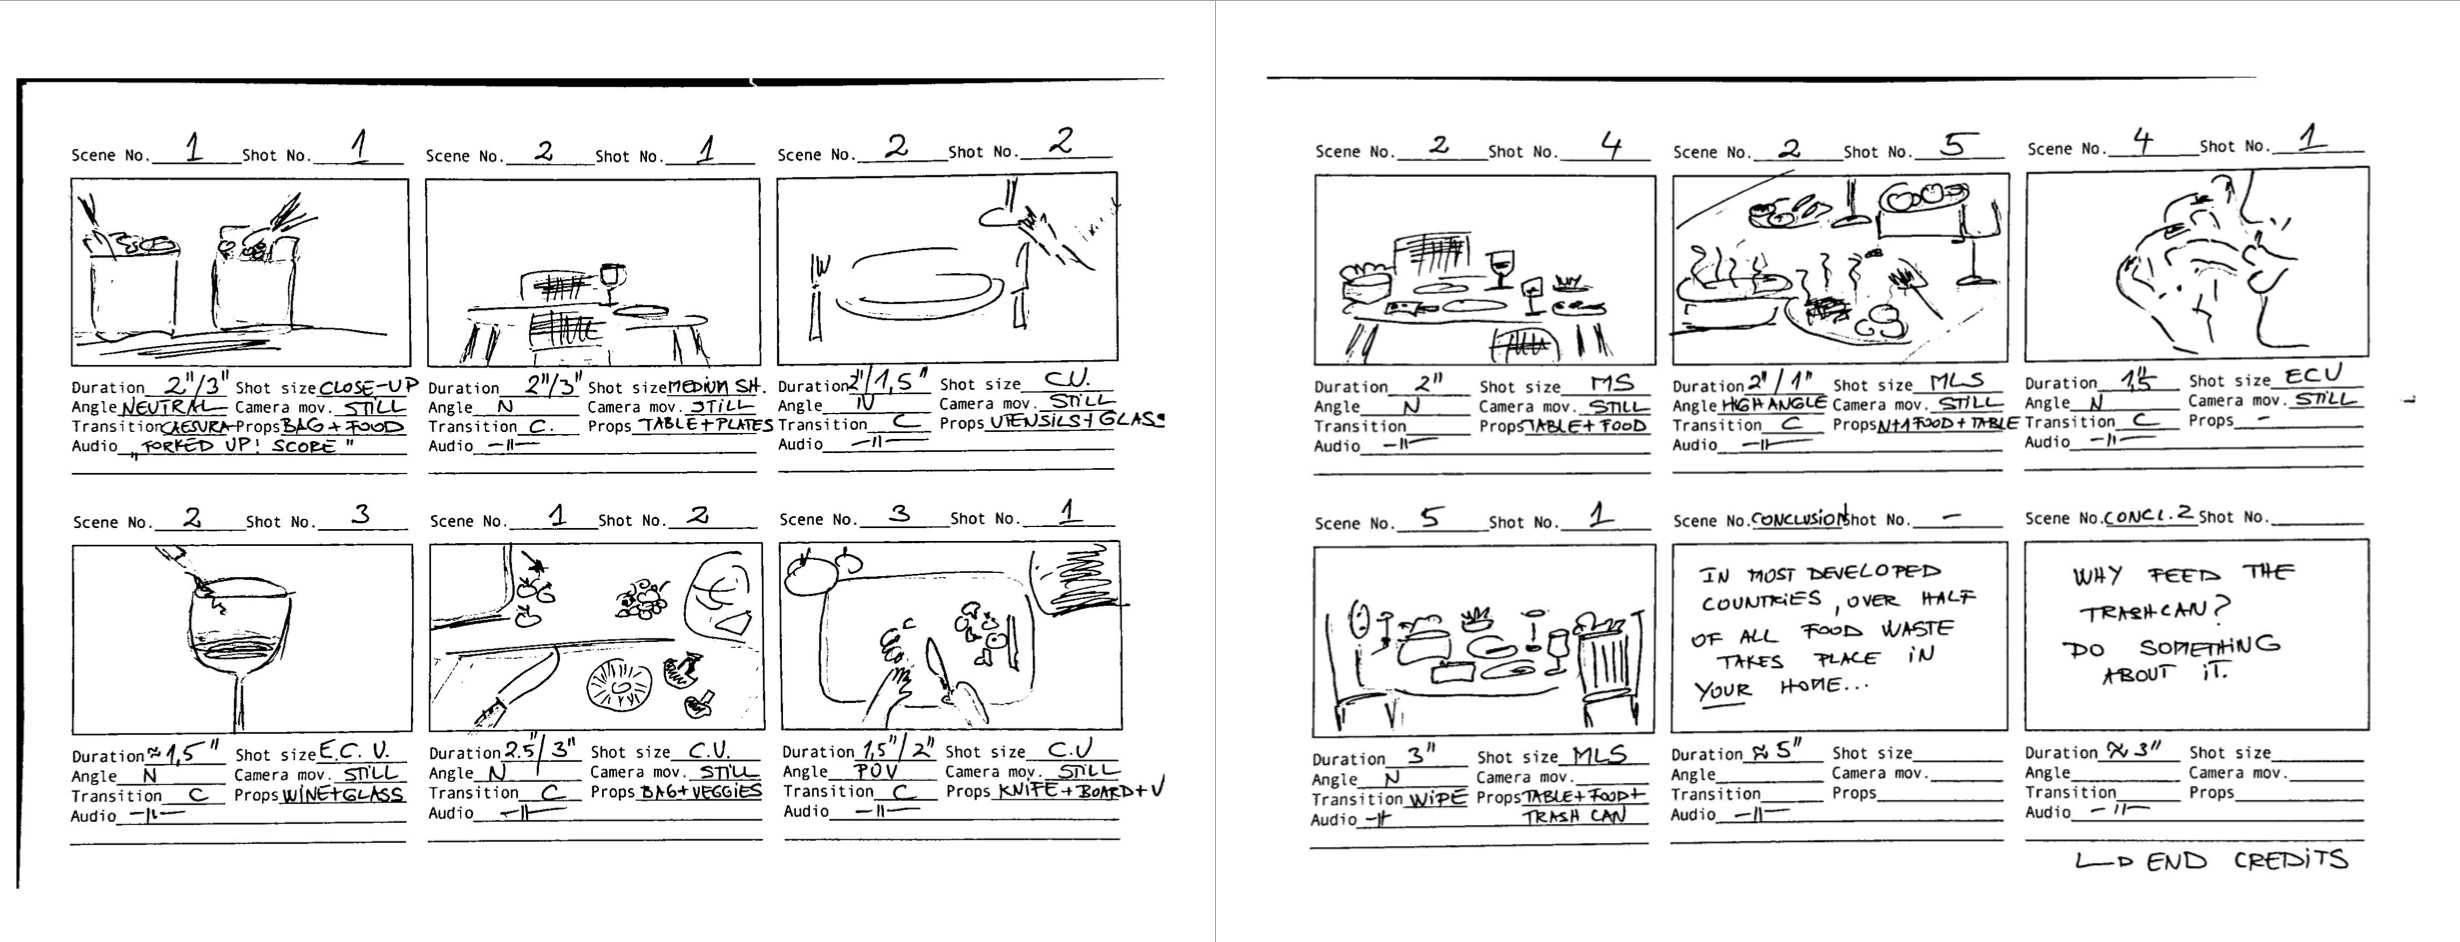 Scene No. 1 Shot No. 1
Duration 2"/3" Shot size CLOSE-UP
Angle NEUTRAL Camera mov. STILL
Transition CAESURA Props BAG + FOOD
Audio „FORKED UP! SCORE"
Scene No. 2 Shot No. 1
Duration 2"/3" Shot size MEDIUM SH.
Angle N Camera mov. STILL
Transition C. Props TABLE+PLATES
Audio -11-
Scene No. 2 Shot No. 2
Duration 2"/1,5" Shot size C.U.
Angle N Camera mov. STILL
Transition C Props UTENSILS+GLASS
Audio -11-
Scene No. 2 Shot No. 3
Duration ≈1,5" Shot size E.C.U.
Angle N Camera mov. STILL
Transition C Props WINE+GLASS
Audio -11-
Scene No. 1 Shot No. 2
Duration 2.5"/3" Shot size C.U.
Angle N Camera mov. STILL
Transition C Props BAG+VEGGIES
Audio -11-
Scene No. 3 Shot No. 1
Duration 1,5"/2" Shot size C.U
Angle POV Camera mov. STILL
Transition C Props KNIFE+BOARD+V
Audio -11-
Scene No. 2 Shot No. 4
Duration 2" Shot size MS
Angle N Camera mov. STILL
Transition Props TABLE+FOOD
Audio -11-
Scene No. 2 Shot No. 5
Duration 2"/1" Shot size MLS
Angle HIGH ANGLE Camera mov. STILL
Transition C Props FOOD+TABLE
Audio -11-
Scene No. 4 Shot No. 1
Duration 1,5" Shot size ECU
Angle N Camera mov. STILL
Transition C Props -
Audio -11-
Scene No. 5 Shot No. 1
Duration 3" Shot size MLS
Angle N Camera mov.
Transition WIPE Props TABLE+FOOD+
Audio -11- TRASH CAN
Scene No. CONCLUSION Shot No. -
IN MOST DEVELOPED
COUNTRIES, OVER HALF
OF ALL FOOD WASTE
TAKES PLACE IN
YOUR HOME...
Duration ≈ 5" Shot size
Angle Camera mov.
Transition Props
Audio -11-
Scene No. CONCL. 2 Shot No.
WHY FEED THE
TRASHCAN?
DO SOMETHING
ABOUT IT.
Duration ≈ 3" Shot size
Angle Camera mov.
Transition Props
Audio -11-
END CREDITS